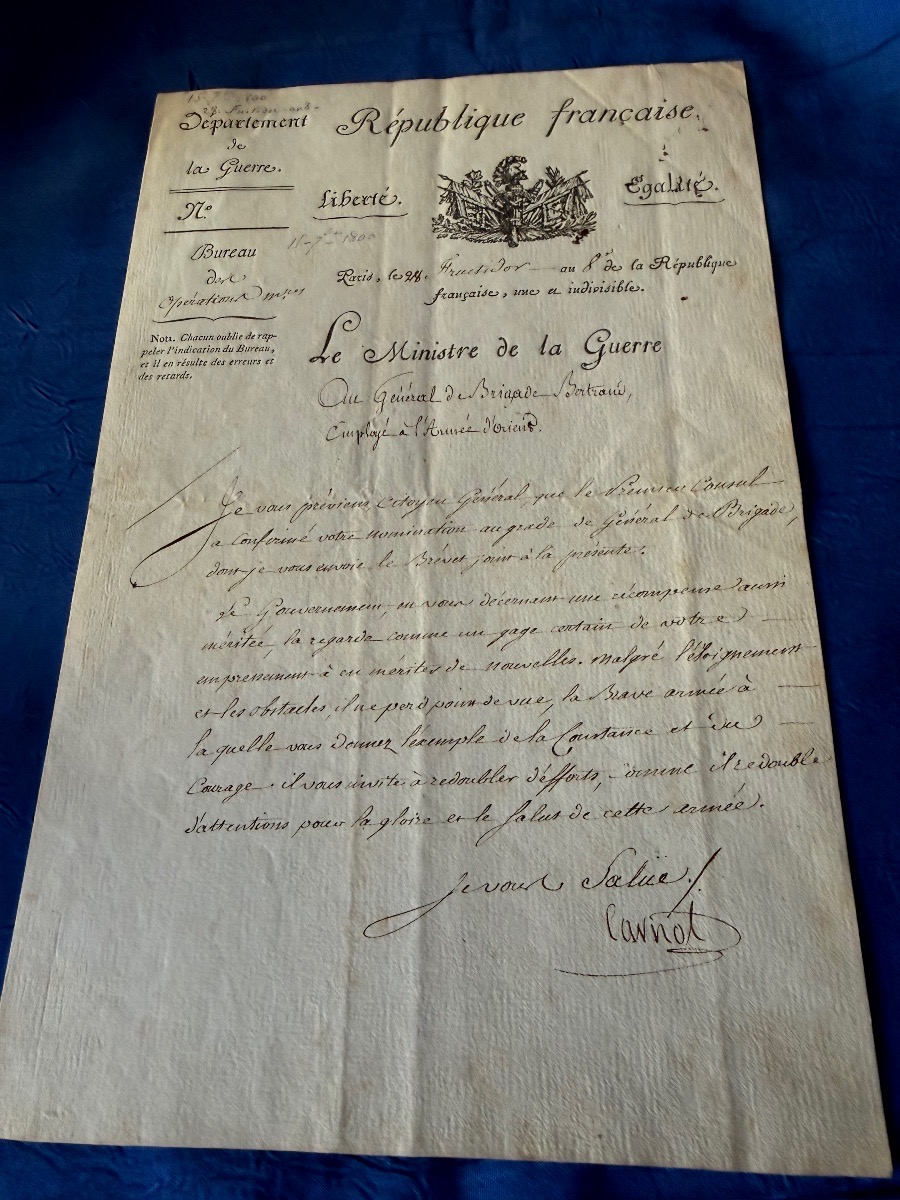 15 - 7bre 1800
28 fructidor an 8 -
Département
de
la Guerre.
République française.
Liberté.
Egalité.
N.o
Bureau
des
Opérations mres
15 - 7bre 1800
Paris, le 28. Fructidor au 8e de la République
française, une et indivisible.
Nota. Chacun oublie de rap-
peler l'indication du Bureau,
et il en résulte des erreurs et
des retards.
Le Ministre de la Guerre
Au Général de Brigade Bertrand,
Employé à l'Armée d'orient.
Je vous préviens, Citoyen Général, que le Premier Consul
a Confirmé votre nomination au grade de Général de Brigade,
dont je vous envoie le Brévet joint à la présente.
Le Gouvernement, en vous décernant une récompense aussi
méritée, la regarde comme un gage certain de votre
empressement à en mériter de nouvelles. Malgré l'éloignement
et les obstacles, il ne perd point de vue, la Brave armée à
laquelle vous donnez l'exemple de la Constance et du
Courage. il vous invite à redoubler d'efforts, comme il redouble
d'attentions pour la gloire et le Salut de cette armée.
Je vous Salue
Carnot